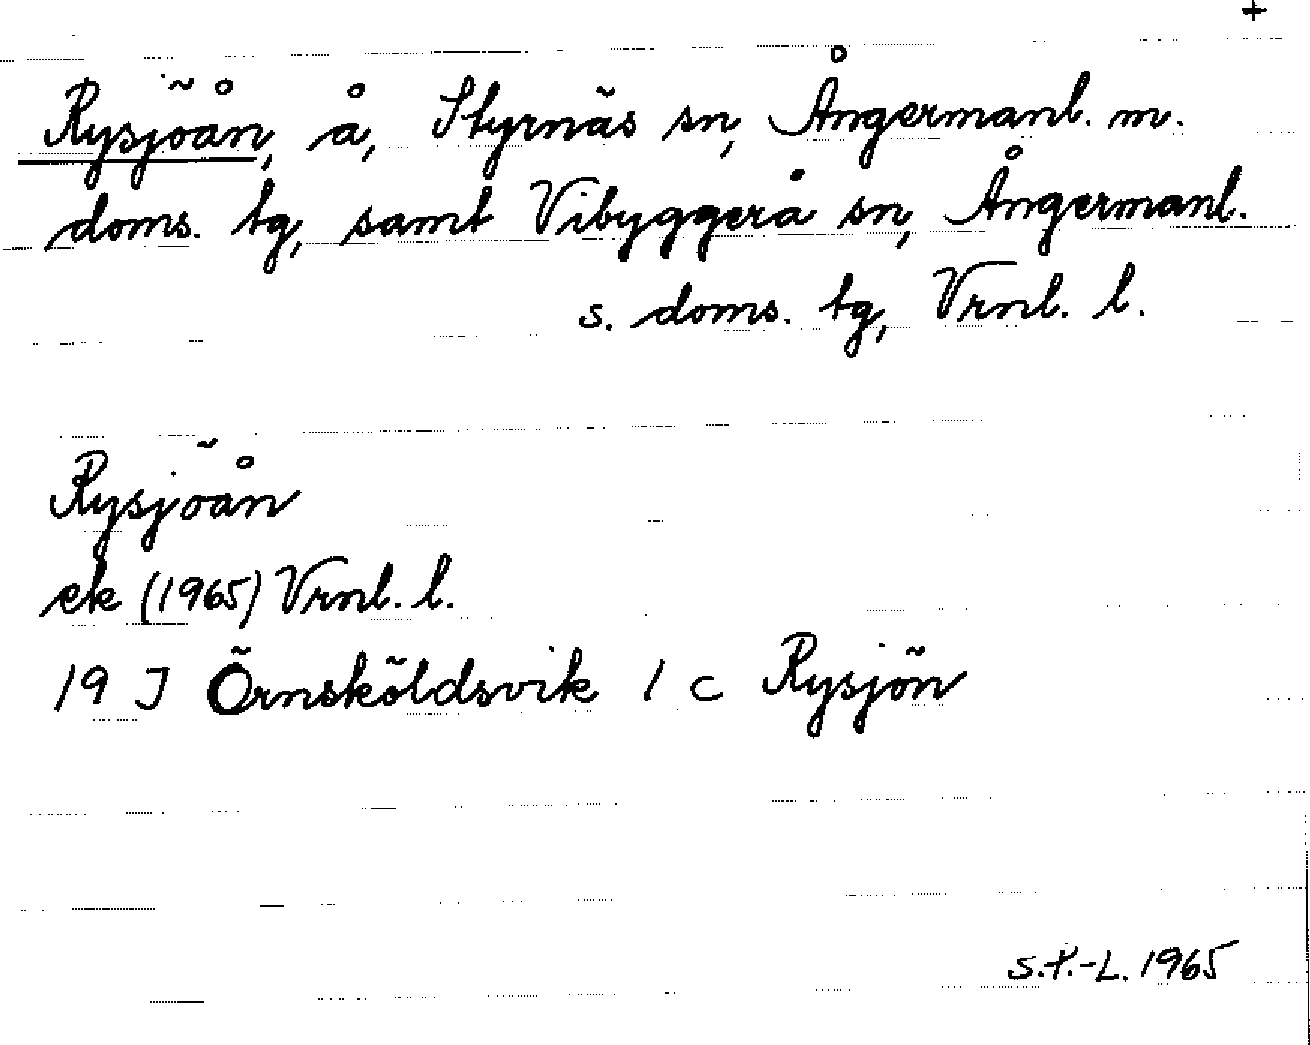 +
Rysjöån, å, Styrnäs sn, Ångermanl. m.
doms. tg, samt Vibyggerå sn, Ångermanl.
s. doms. tg, Vrnl. l.
Rysjöån
ek (1965) Vrnl. l.
19 J Örnsköldsvik 1 c Rysjön
S.P.-L. 1965